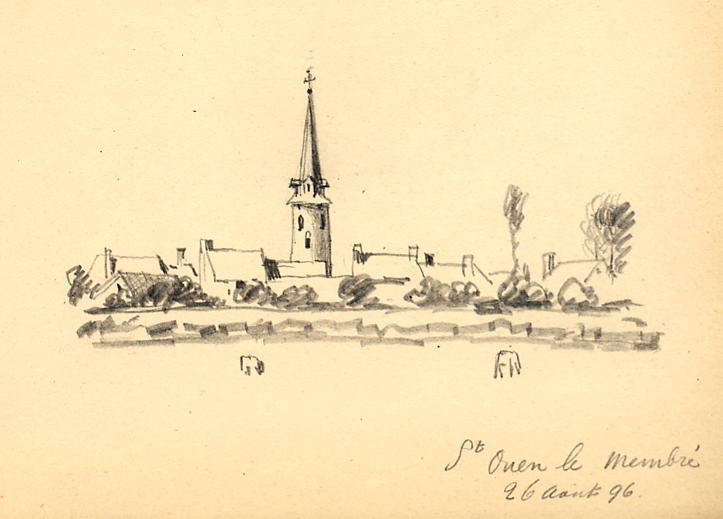 St Ouen le Membré
26 Août 96.